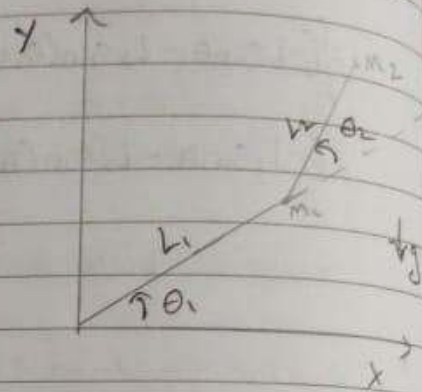 Y
m2
L2 θ2
m1
L1
↓g
θ1
X